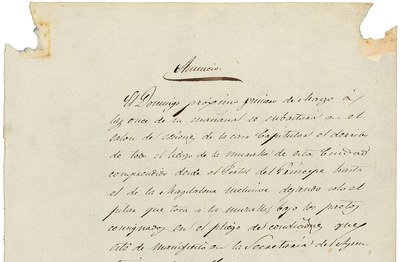 Anuncio
El Domingo próximo primero de Marzo á
las once de su mañana se subastará en el
salon de sesiones de la casa Capitular el derribo
de todo el lienzo de la muralla de esta Ciudad
comprendido desde el Portal del Principe hasta
el de la Magdalena inclusive dejando solo el
pilar que toca a la muralla, bajo los pactos
consignados en el pliego de condiciones que
está de manifiesto en la Secretaría del Ayun